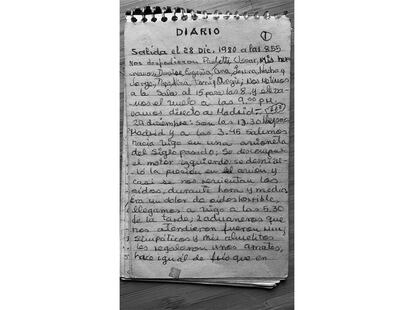 DIARIO
1
Salida el 28 Dic. 1980 a las 855
Nos despidieron Paulette, Oscar, Mis her
manas, Denise, Eugenia, Ana, Laura, Nacho y
Jorge,
a la Sala al 15 para las 8, y
mos el vuelo a las 9.00 PM
vamos directo a Madrid=
29 diciembre: son las 13.30
Madrid y a las 3.46 salimos
hacia Vigo en una avioneta
del siglo pasado; se descompuso
el motor izquierdo,
la presión en el avion y
casi se nos revientan los
oidos, durante hora y media,
era un dolor de oidos horrible,
llegamos a Vigo a las 5.30
de la tarde; 2 aduaneros que
nos atendieron fueron muy
simpáticos y mis abuelitos
les regalaron unos
hace igual de frío que en